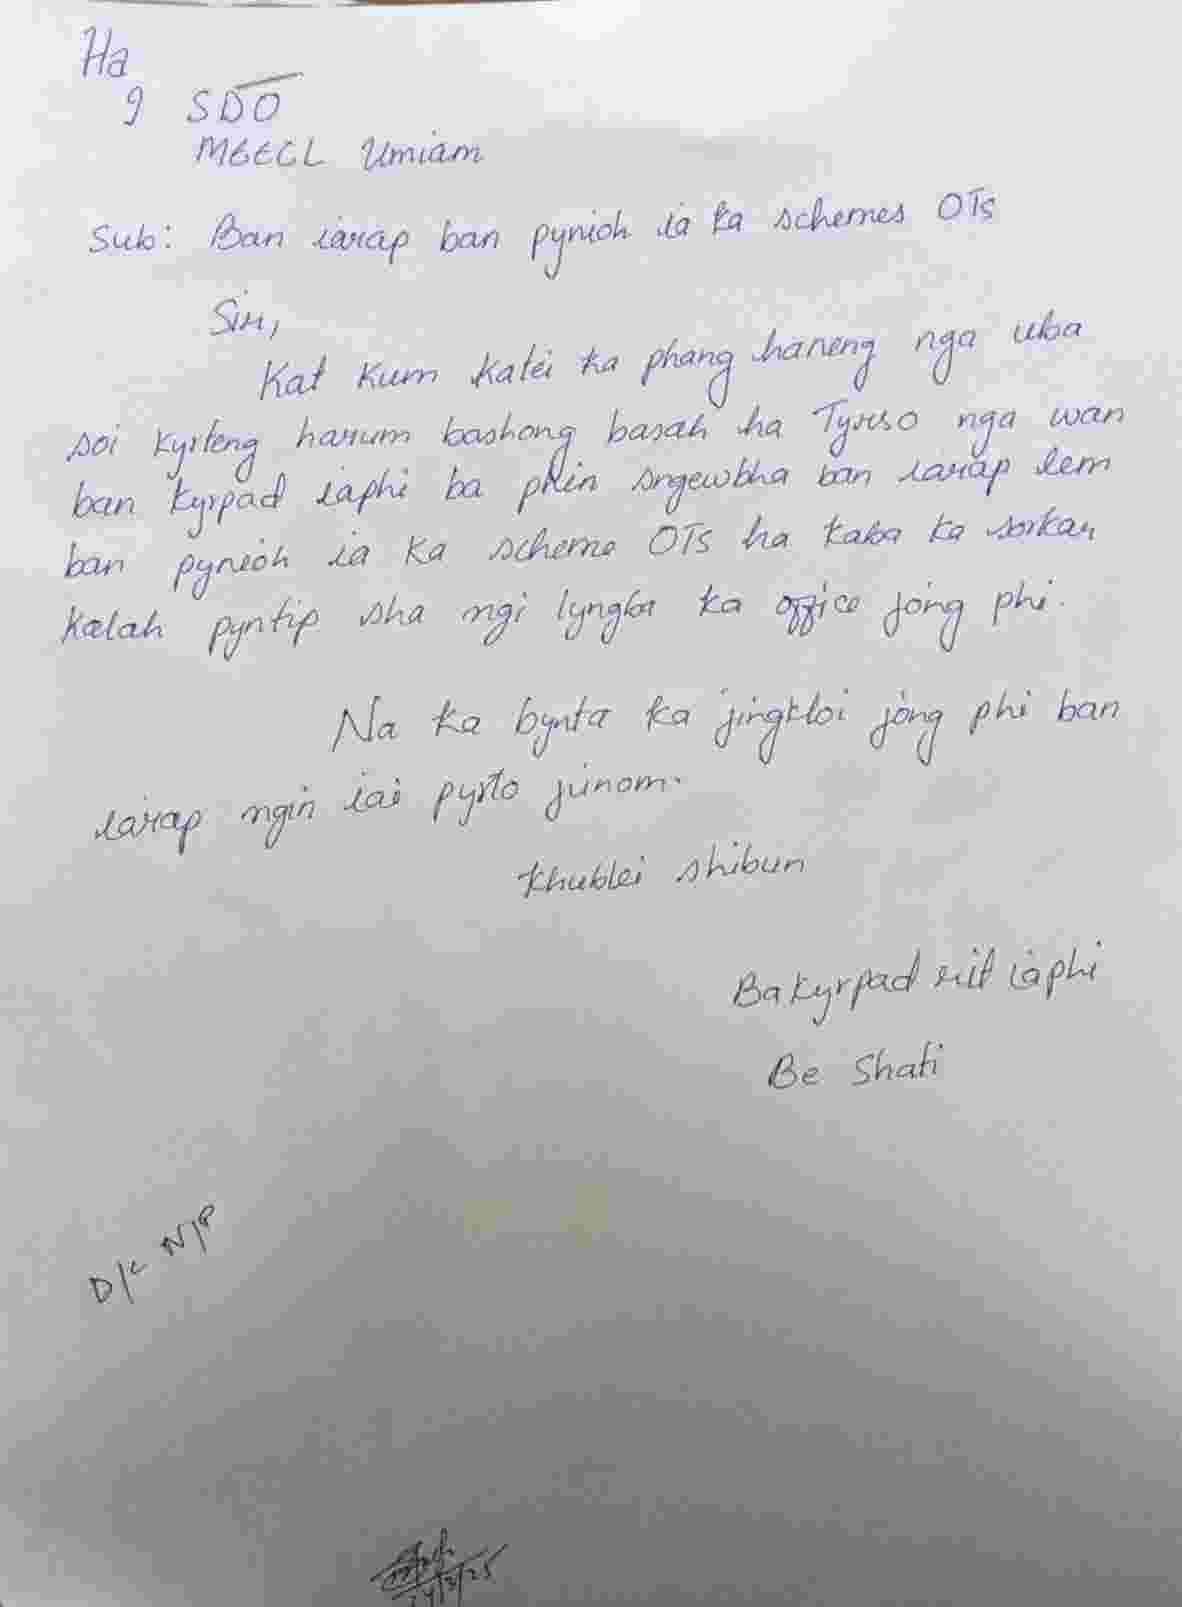 Ha
I SDO
MEECL Umiam
Sub: Ban iarap ban pynioh ia ka schemes OTs
Sir,
Kat kum katei ka phang haneng nga uba
soi kyrteng harum bashong basah ha Tyrso nga wan
ban kyrpad iaphi ba phin sngewbha ban iarap lem
ban pynioh ia ka scheme OTs ha kaba ka sorkar
kalah pyntip sha ngi lyngba ka office jong phi.
Na ka bynta ka jingkloi jong phi ban
iarap ngin iai pyrto junom.
Khublei shibun
Bakyrpad rit iaphi
Be Shati
D/C N/P